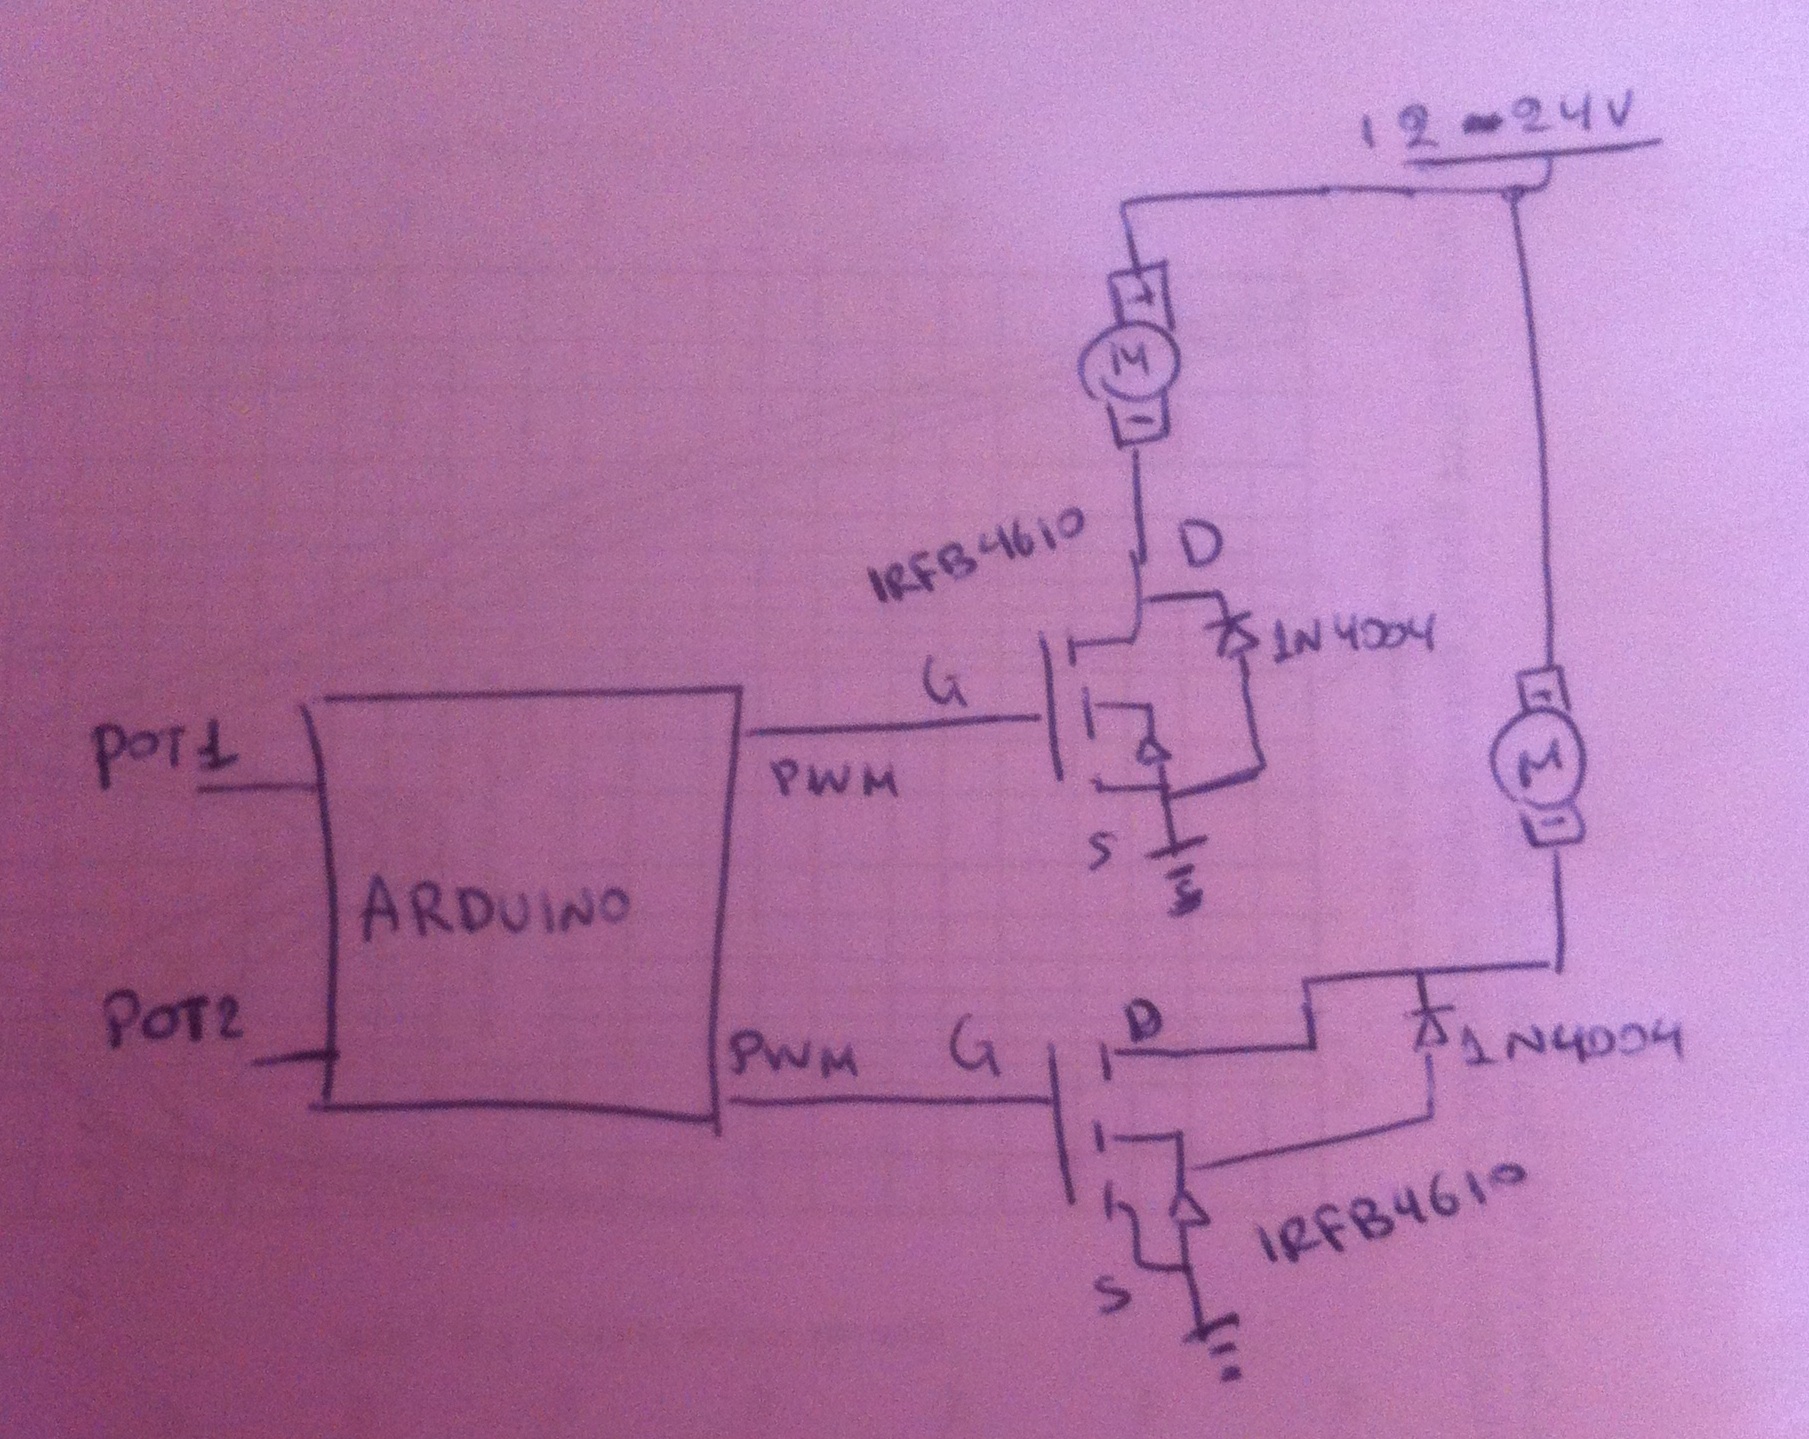 12-24V
+
M
-
IRFB4610
D
1N4004
G
POT1
PWM
S
+
M
-
ARDUINO
POT2
PWM
G
D
1N4004
IRFB4610
S